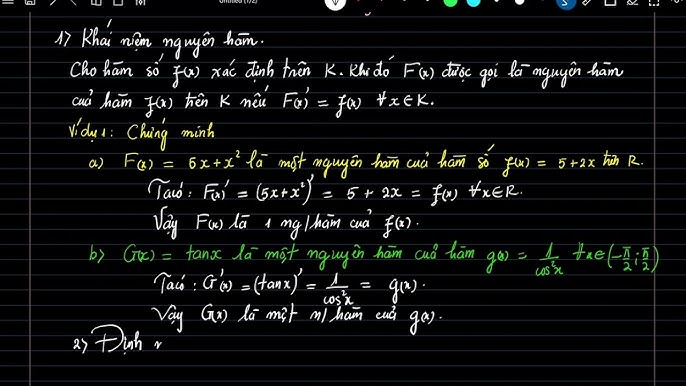 Untitled (1/2)
1> Khái niệm nguyên hàm.
Cho hàm số f(x) xác định trên K. Khi đó F(x) được gọi là nguyên hàm
của hàm f(x) trên K nếu F(x)' = f(x) ∀x∈K.
Ví dụ 1: Chứng minh
a) F(x) = 5x+x² là một nguyên hàm của hàm số f(x) = 5+2x trên R.
Ta có: F(x)' = (5x+x²)' = 5 + 2x = f(x) ∀x∈R.
Vậy F(x) là 1 ng/hàm của f(x).
b) G(x) = tanx là một nguyên hàm của hàm g(x) = 1/cos²x ∀x∈(-π/2; π/2)
Ta có: G'(x) = (tanx)' = 1/cos²x = g(x).
Vậy G(x) là một n/hàm của g(x).
2> Định